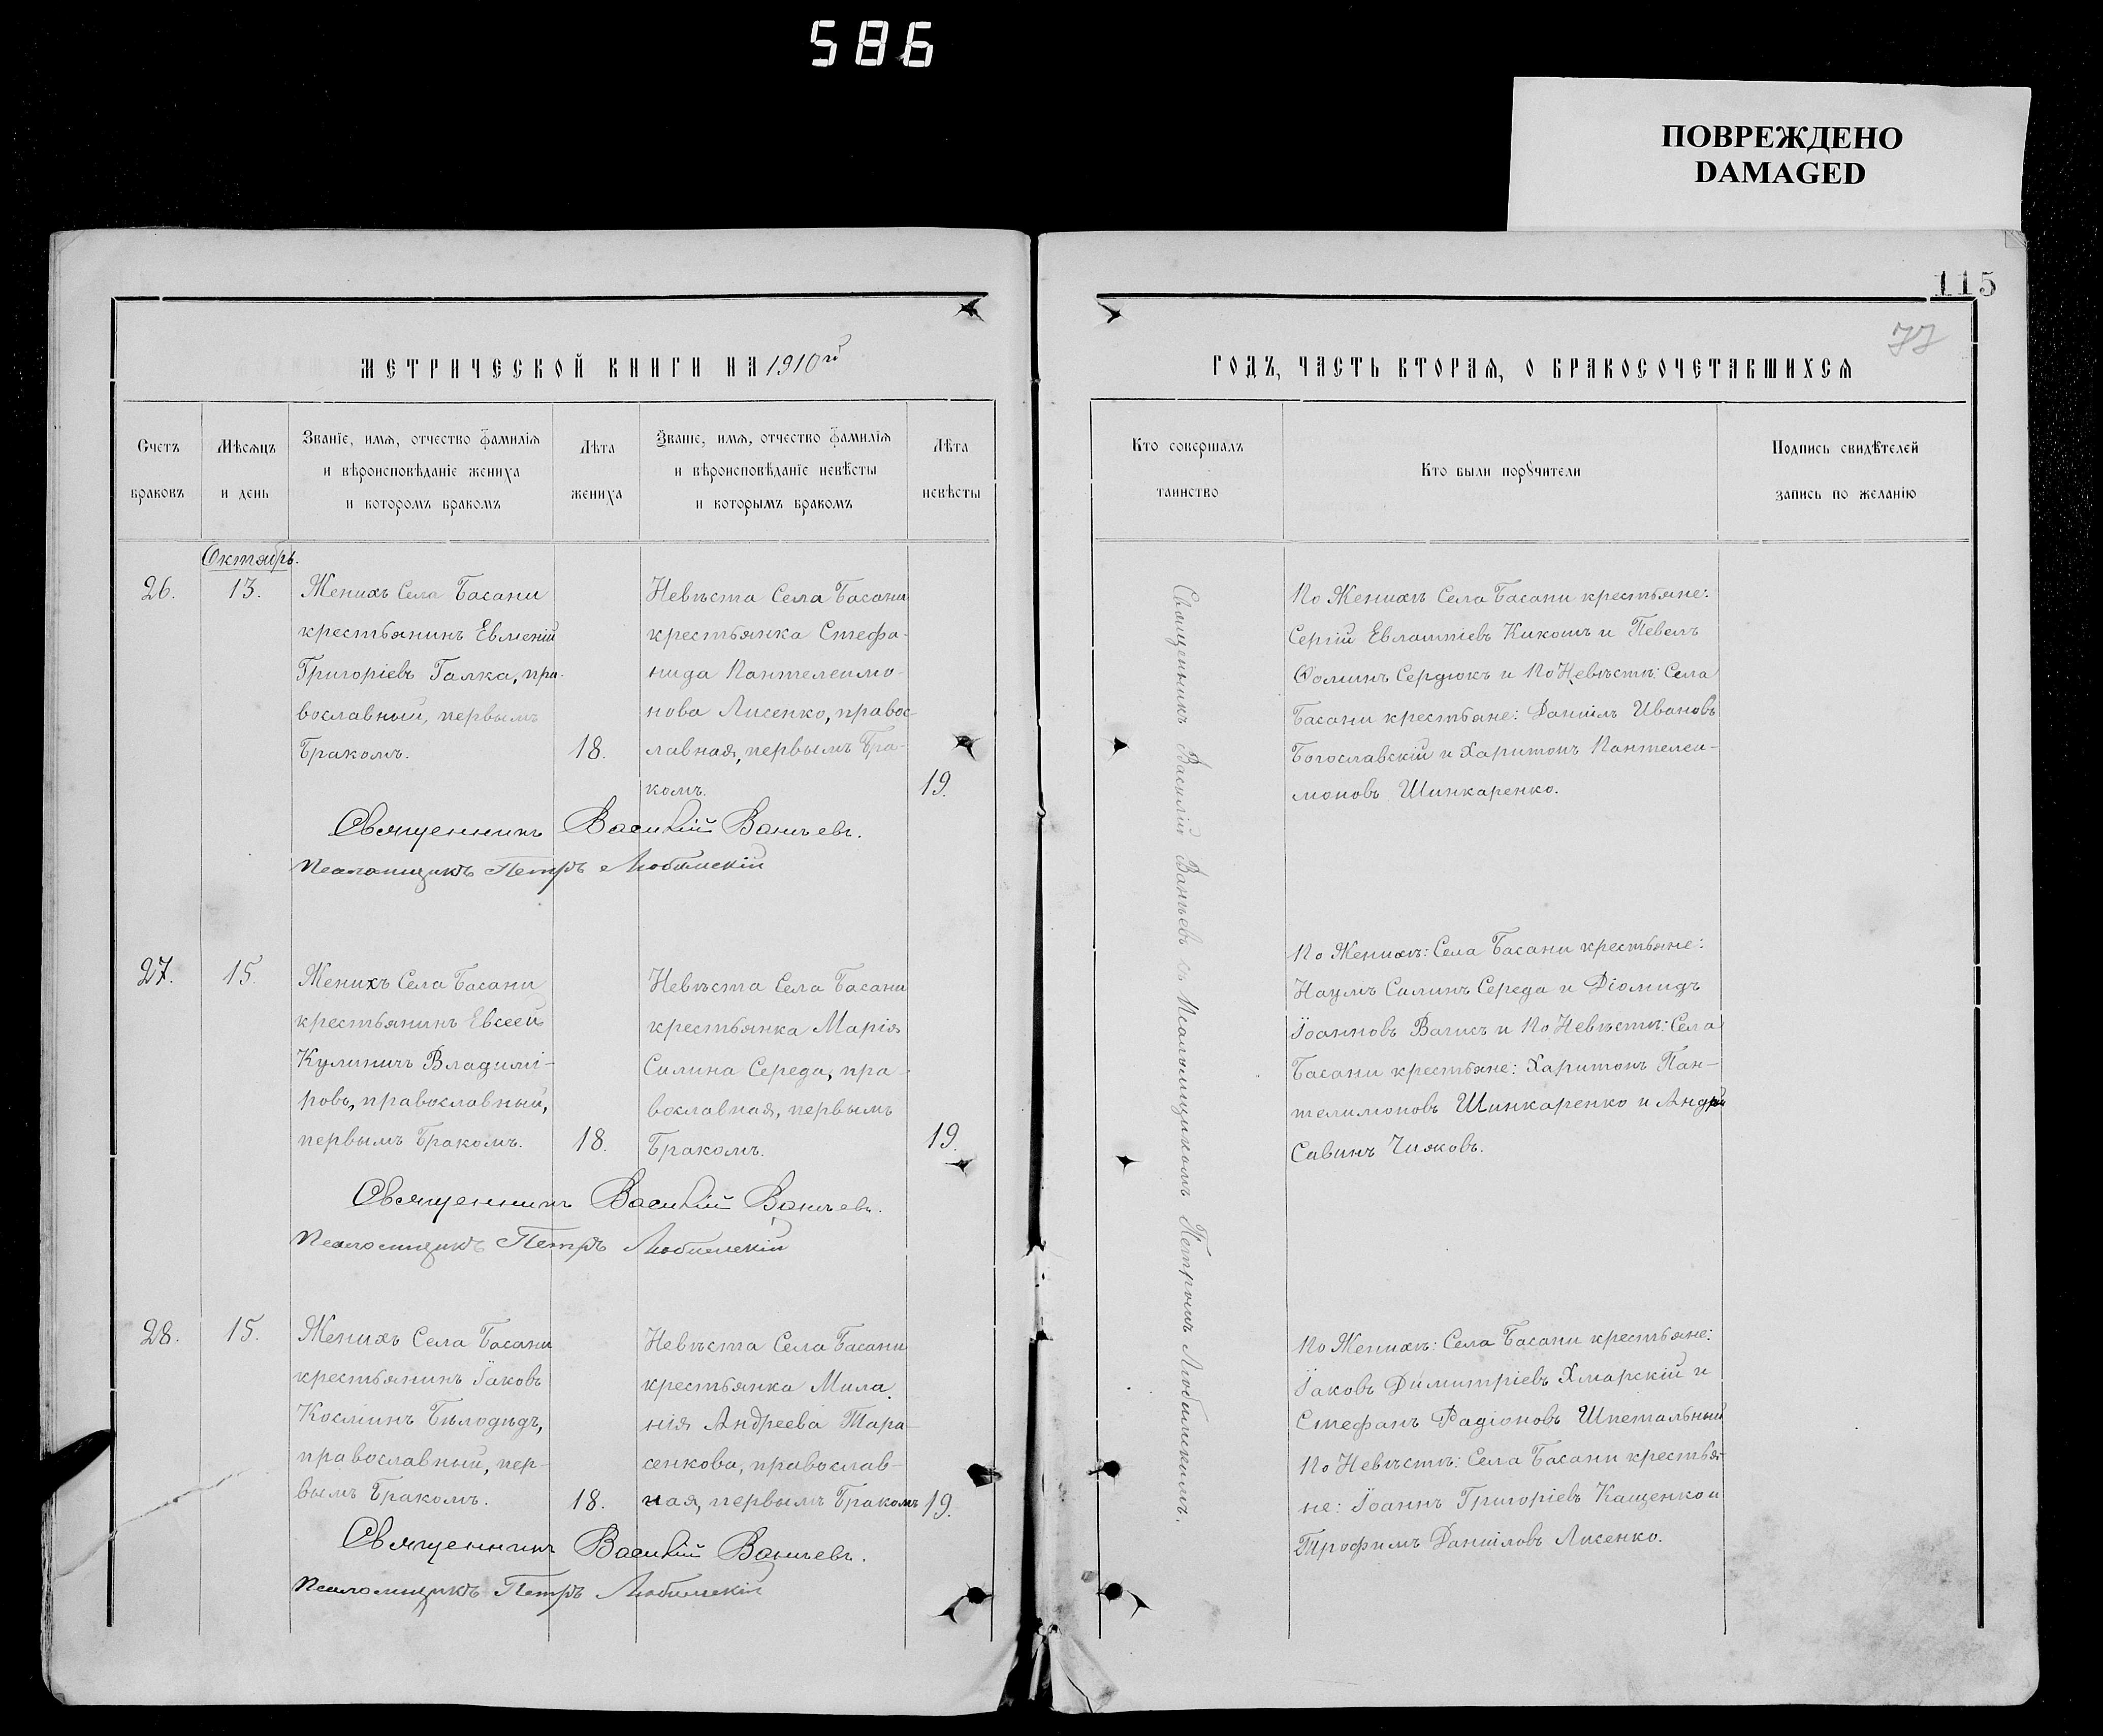 586
ПОВРЕЖДЕНО
DAMAGED
115
77
МЕТРИЧЕСКОЙ КНИГИ НА 1910й
ГОДЪ, ЧАСТЬ ВТОРАЯ, О БРАКОСОЧЕТАВШИХСЯ
Счетъ
браковъ
Мѣсяцъ
и день
Званіе, имя, отчество фамилія
и вѣроисповѣданіе жениха
и которомъ бракомъ
Лѣта
жениха
Званіе, имя, отчество фамилія
и вѣроисповѣданіе невѣсты
и которымъ бракомъ
Лѣта
невѣсты
Кто совершалъ
таинство
Кто были поручители
Подпись свидѣтелей
запись по желанію
Октябрь.
26.
13.
Женихъ Села Басани
крестьянинъ Евменій
Григоріевъ Галка, пра-
вославный, первымъ
бракомъ.
18.
Невѣста Села Басани
крестьянка Стефа-
нида Пантелеимо-
нова Лисенко, правос-
лавная, первымъ бра-
комъ.
19.
Священникъ Василій Ваньевъ.
Псаломщикъ Петръ Любимскій
По Женихѣ Села Басани крестьяне:
Сергій Евлампіевъ Кикотъ и Павелъ
Фоминъ Сердюкъ и По Невѣстѣ: Села
Басани крестьяне: Даніилъ Ивановъ
Богославскій и Харитонъ Пантелеи-
моновъ Шинкаренко.
27.
15.
Женихъ Села Басани
крестьянинъ Евсеей
Кулиничъ Владимі-
ровъ, православный,
первымъ бракомъ.
18.
Невѣста Села Басани
крестьянка Марія
Силина Середа, пра-
вославная, первымъ
бракомъ.
19.
Священникъ Василій Ваньевъ.
Псаломщикъ Петръ Любимскій
По Женихѣ: Села Басани крестьяне:
Наумъ Силинъ Середа и Діомидъ
Іоанновъ и По Невѣстѣ: Села
Басани крестьяне: Харитонъ Пан-
телимоновъ Шинкаренко и Андрей
Савинъ Чижовъ.
28.
15.
Женихъ Села Басани
крестьянинъ Іаковъ
Косминъ Бѣлодѣдъ,
православный, пер-
вымъ бракомъ.
18.
Невѣста Села Басани
крестьянка Мила-
нія Андреева Тара-
сенкова, православ-
ная, первымъ бракомъ
19.
Священникъ Василій Ваньевъ.
Псаломщикъ Петръ Любимскій
По Женихѣ: Села Басани крестьяне:
Іаковъ Димитріевъ Хмарскій и
Стефанъ Радіоновъ Шпетальный
По Невѣстѣ: Села Басани крестья-
не: Іоаннъ Григоріевъ Кащенко и
Трофимъ Даніиловъ Лисенко.
Священникъ Василій Ваньевъ съ Псаломщикомъ Петромъ Любимскимъ.